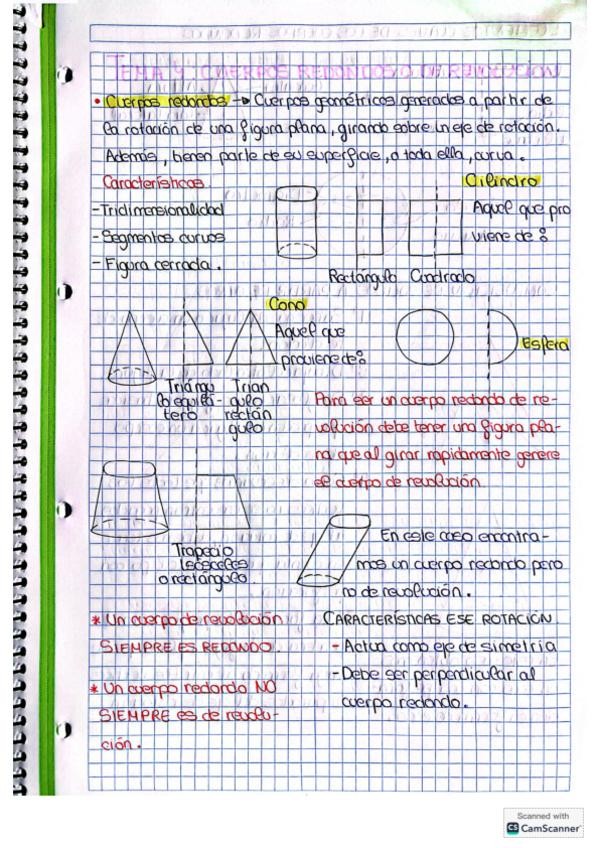 TEMA 4: CUERPOS REDONDOS O DE REVOLUCIÓN
• Cuerpos redondos → Cuerpos geométricos generados a partir de
la rotación de una figura plana, girando sobre un eje de rotación.
Además, tienen parte de su superficie, o toda ella, curva.
Características
- Tridimensionalidad
- Segmentos curvos
- Figura cerrada.
Cilindro
Aquel que pro
viene de:
Rectángulo Cuadrado
Cono
Aquel que
proviene de:
Triángu
lo equilá-
tero
Trian
gulo
rectán
gulo
Esfera
Para ser un cuerpo redondo de re-
volución debe tener una figura pla-
na que al girar rápidamente genere
el cuerpo de revolución.
Trapecio
isósceles
o rectángulo.
En este caso encontra-
mos un cuerpo redondo pero
no de revolución.
* Un cuerpo de revolución
SIEMPRE ES REDONDO.
* Un cuerpo redondo NO
SIEMPRE es de revolu-
ción.
CARACTERÍSTICAS ESE ROTACIÓN
- Actua como eje de simetría
- Debe ser perpendicular al
cuerpo redondo.
Scanned with
CS CamScanner